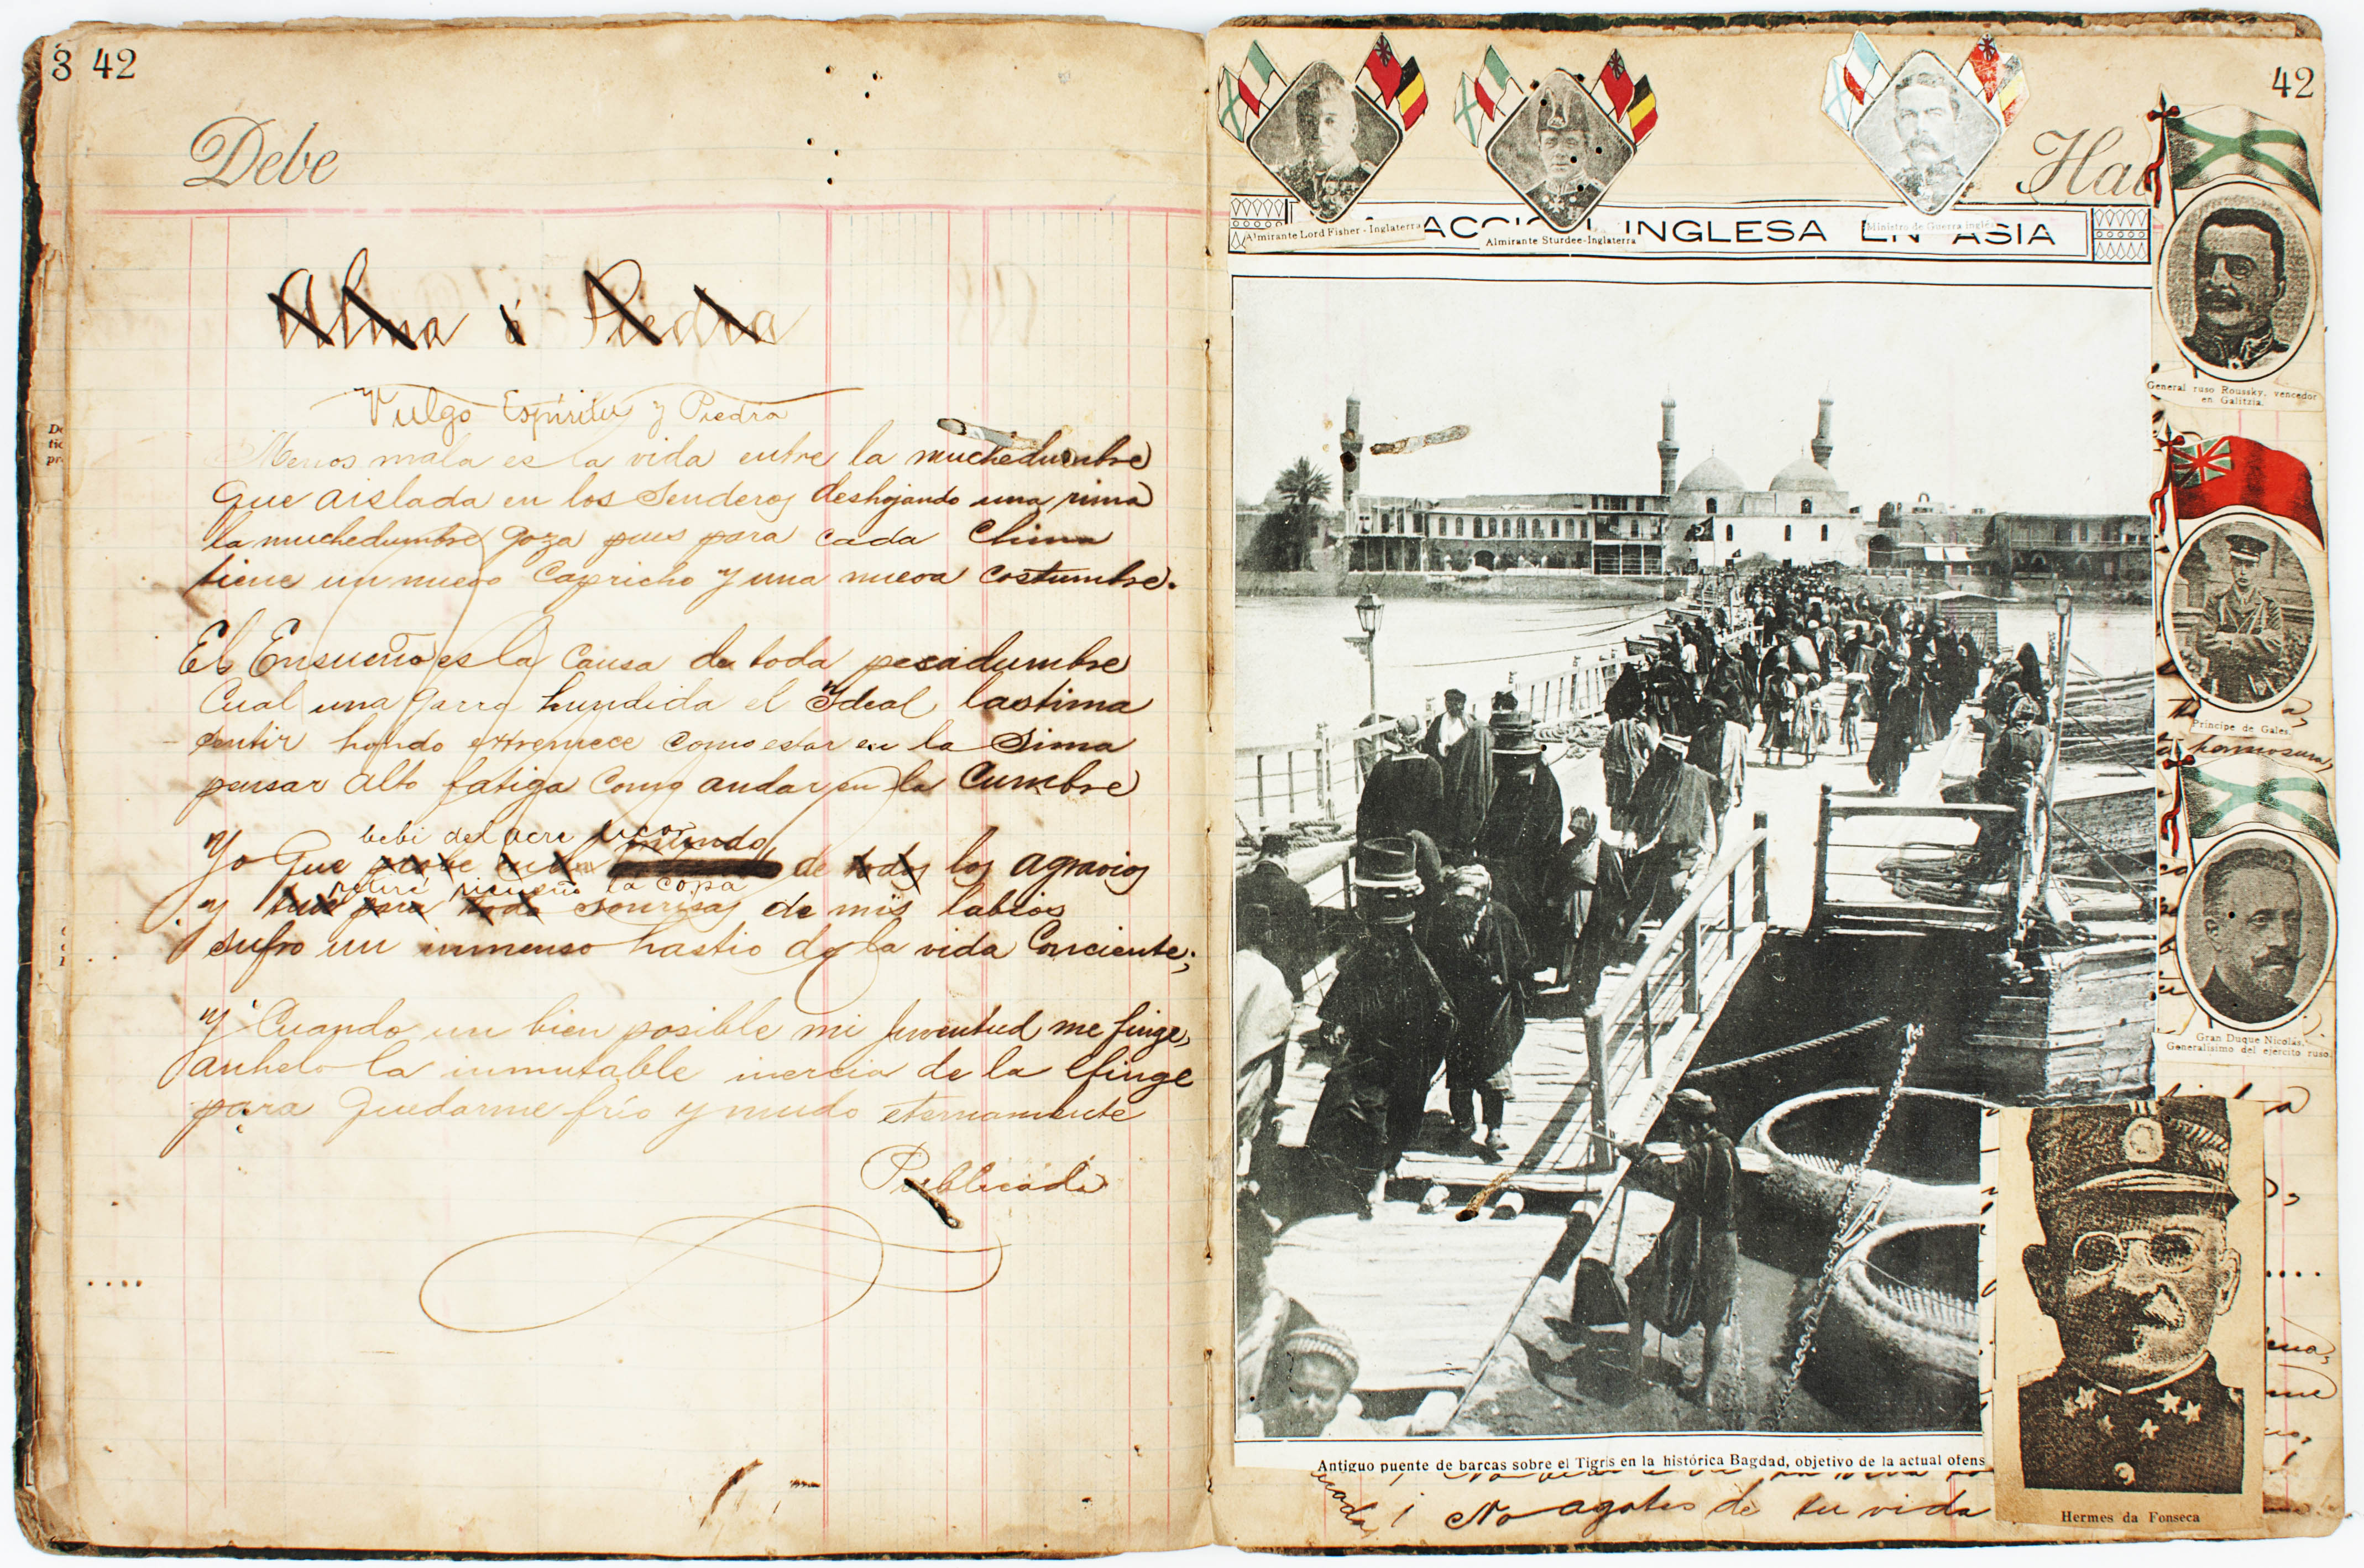 3 42
Debe
Alma ó Piedra
Vulgo Espíritu y Piedra
Menos mala es la vida entre la muchedumbre
que aislada en los Senderos deshojando una rima
la muchedumbre goza pues para cada Clima
tiene un nuevo Capricho y una nueva costumbre.
El Ensueño es la Causa de toda pesadumbre
Cual una garra hundida el Ideal lastima
sentir hondo extremece como estar en la Sima
pensar alto fatiga Como andar en la Cumbre
bebi del acre licor
Yo que mundo de todos los agravios
retiré risueño la copa
y tuve para todo sonrisas de mis labios
sufro un inmenso hastio de la vida Conciente;
y Cuando un bien posible mi juventud me finge,
anhelo la inmutable inercia de la Efinge
para quedarme frío y mudo eternamente
Publicada
....
42
Ha
ACCIÓN INGLESA EN ASIA
Almirante Lord Fisher - Inglaterra
Almirante Sturdee-Inglaterra
Ministro de Guerra inglés
General ruso Roussky, vencedor
en Galitzia.
Principe de Gales.
hermosura,
Gran Duque Nicolás.
Generalísimo del ejercito ruso.
Antiguo puente de barcas sobre el Tigris en la histórica Bagdad, objetivo de la actual ofens
¡ No agotes de tu vida
Hermes da Fonseca